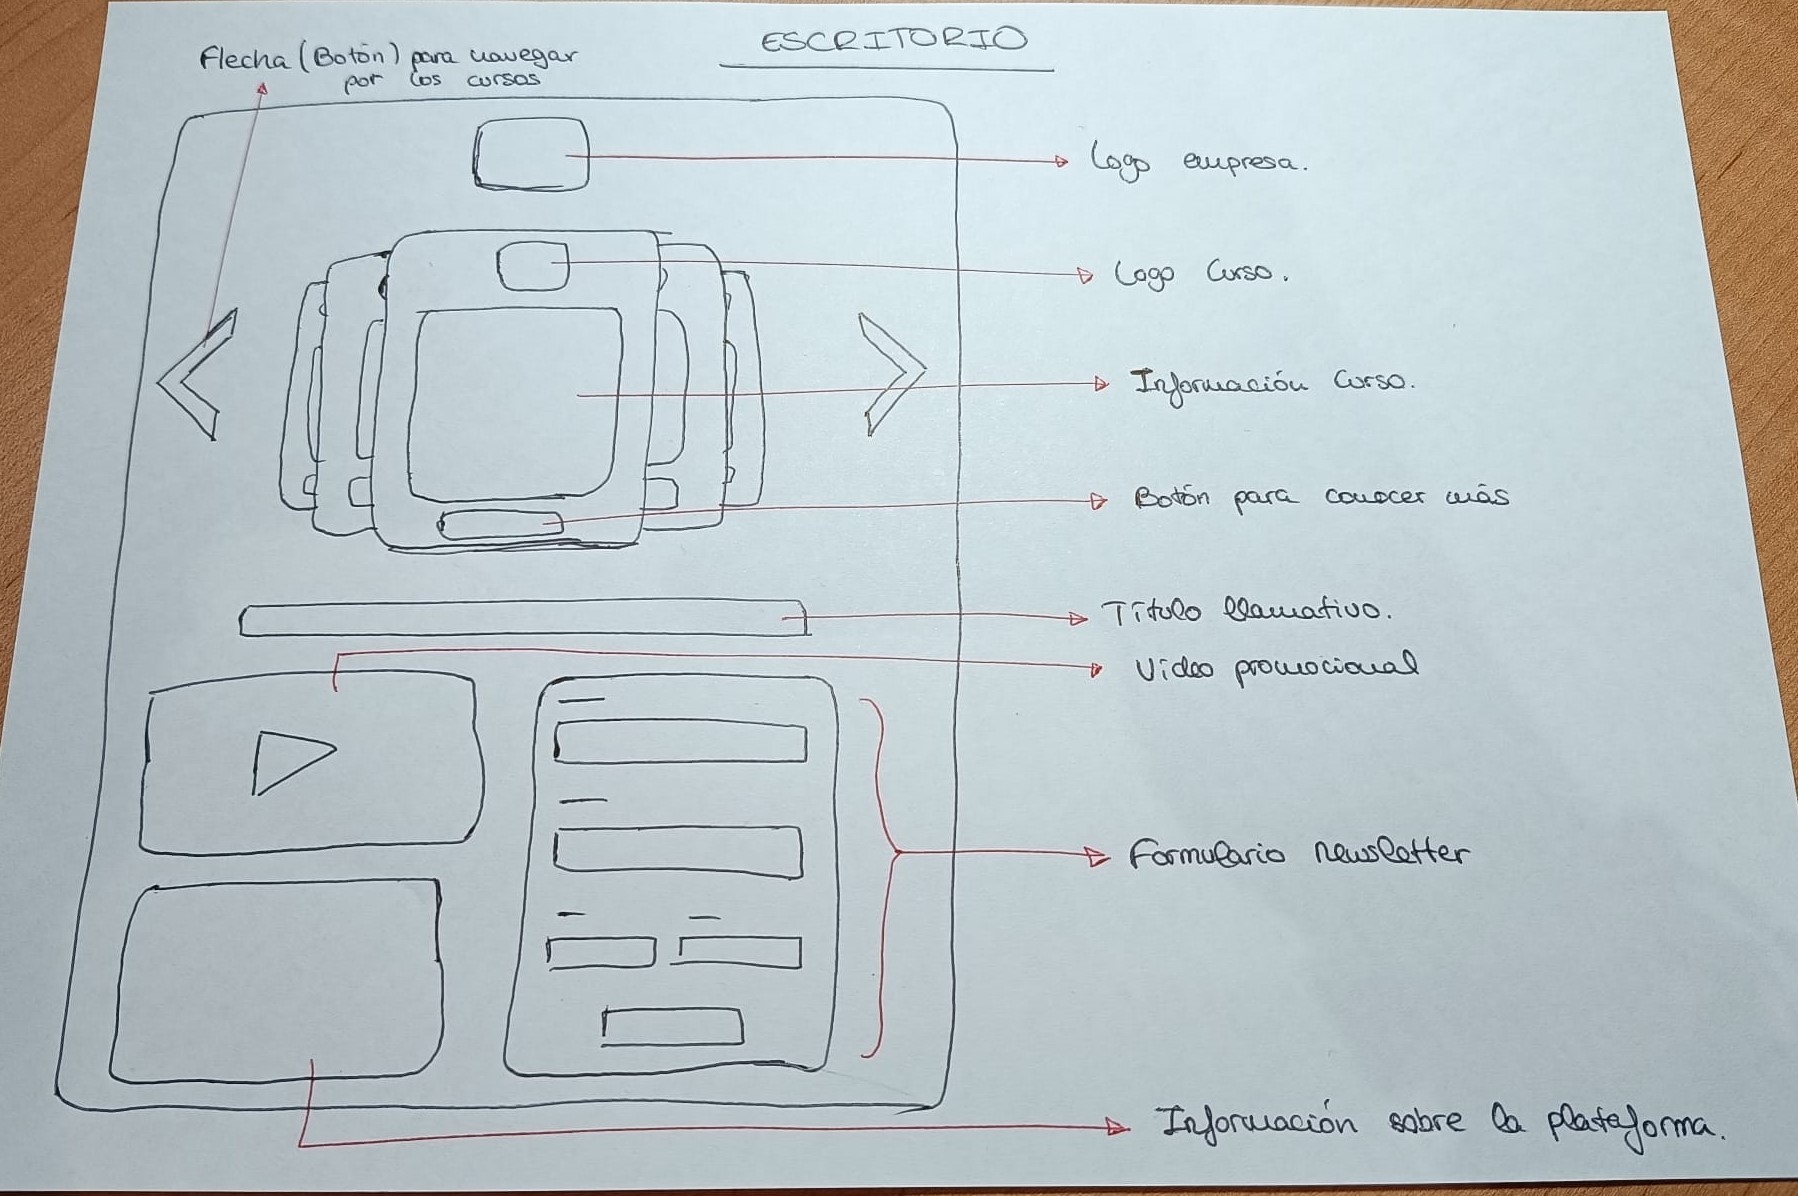 ESCRITORIO
Flecha (Botón) para navegar
por los cursos
Logo empresa.
Logo Curso.
Información Curso.
Botón para conocer más
Título llamativo.
Video promocional
Formulario newsletter
Información sobre la plataforma.